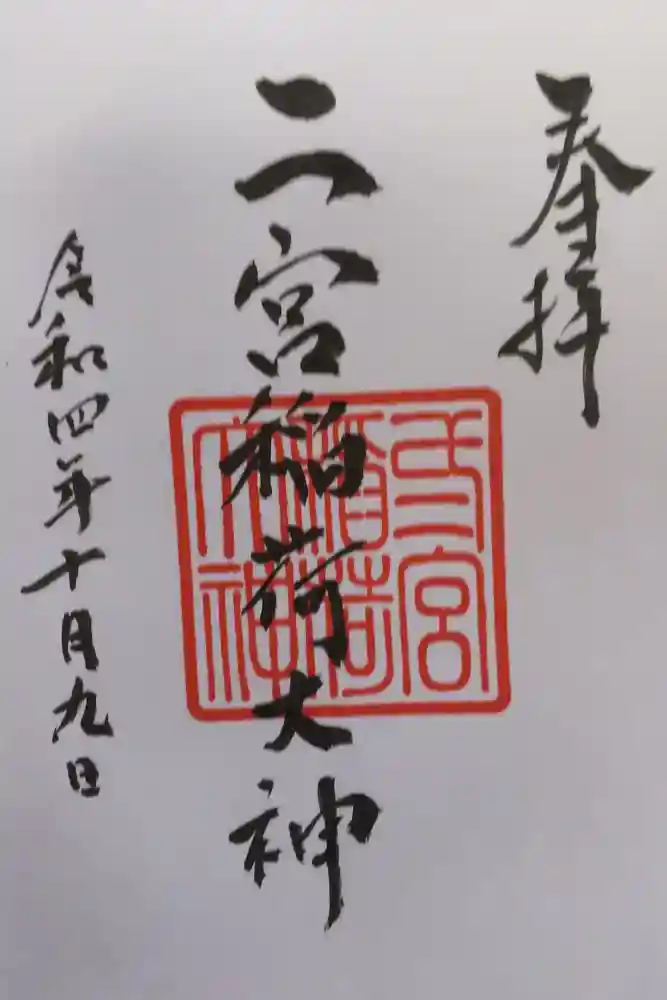 奉拝
二宮稲荷大神
令和四年十月九日
二宮
稲荷
大神